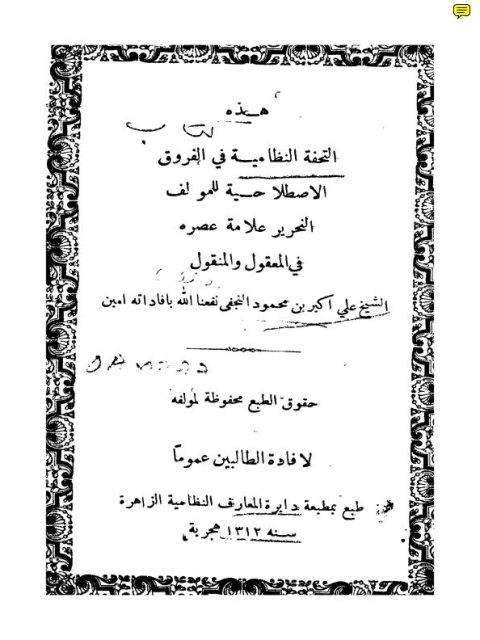 هذه
كتاب
التحفة النظامية في الفروق
الاصطلاحية للمولف
النحرير علامة عصره
في المعقول والمنقول
الشيخ علي اكبر بن محمود النجفي نفعنا الله بافاداته امين
حقوق الطبع محفوظة لمولفه
لافادة الطالبين عموما
طبع بمطبعة دايرة المعارف النظامية الزاهرة
سنه ١٣١٢ هجرية